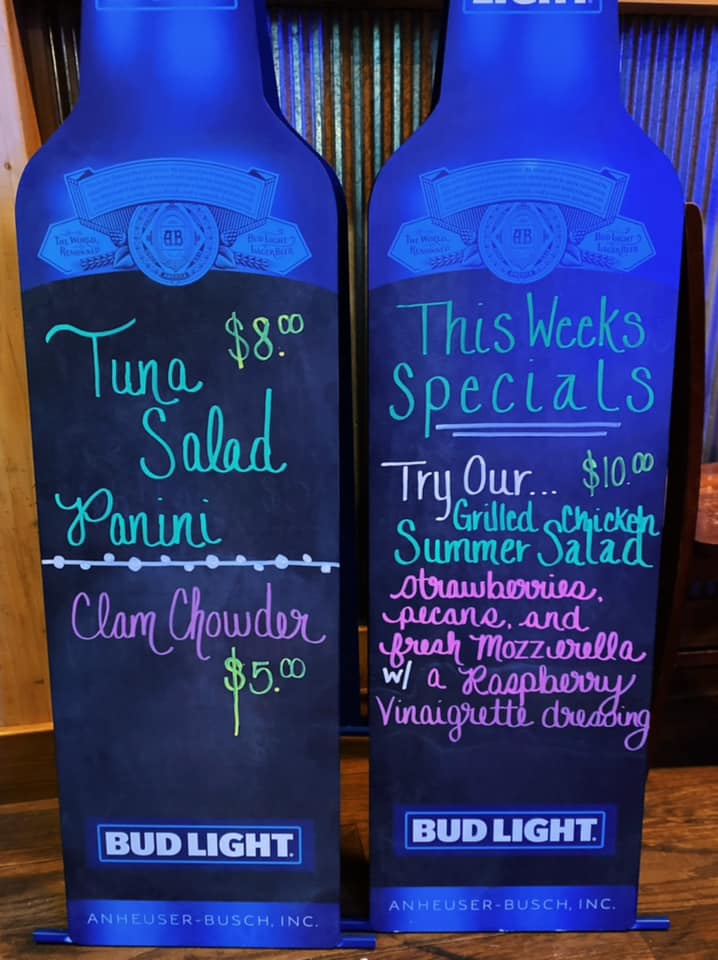 THE WORLD
RENOWNED
AB
BUD LIGHT
LAGER BEER
AMERICA
Tuna
$8.00
Salad
Panini
Clam Chowder
$5.00
BUD LIGHT.
ANHEUSER-BUSCH, INC.
LIGHT.
THE WORLD
RENOWNED
AB
BUD LIGHT
LAGER BEER
AMERICA
This Weeks
Specials
Try Our... $10.00
Grilled Chicken
Summer Salad
strawberries,
pecans, and
fresh Mozzerella
w/ a Raspberry
Vinaigrette dressing
BUD LIGHT.
ANHEUSER-BUSCH, INC.